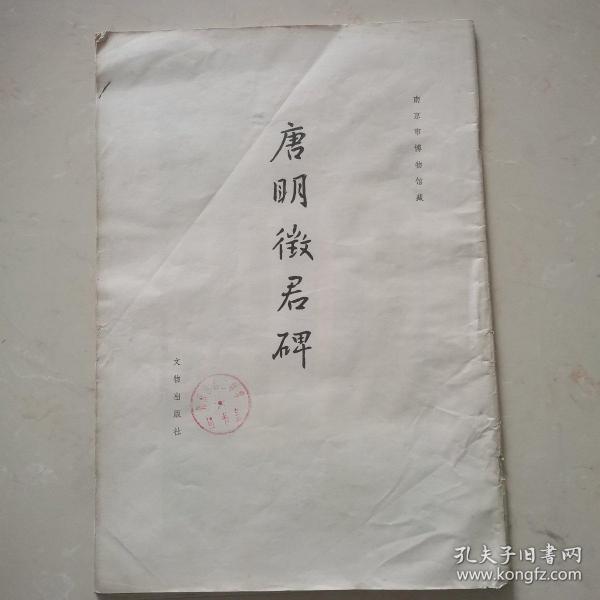 南京市博物馆藏
唐明徵君碑
文物出版社
孔夫子旧书网
www.kongfz.com